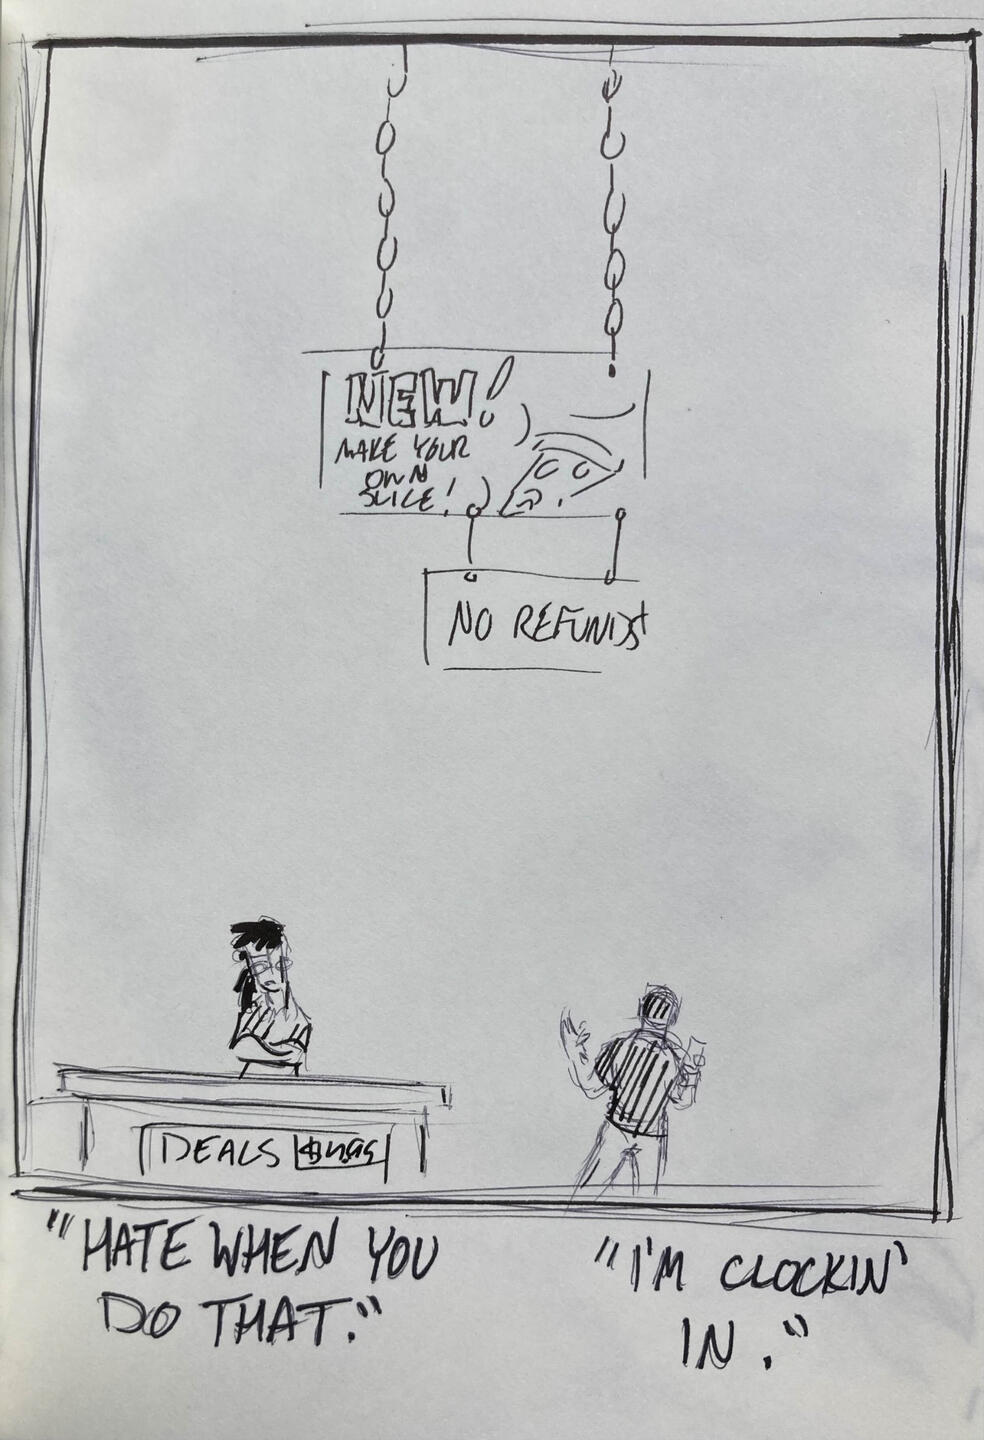 NEW!
MAKE YOUR
OWN
SLICE!
NO REFUNDS
DEALS
"HATE WHEN YOU
DO THAT."
"I'M CLOCKIN'
IN."